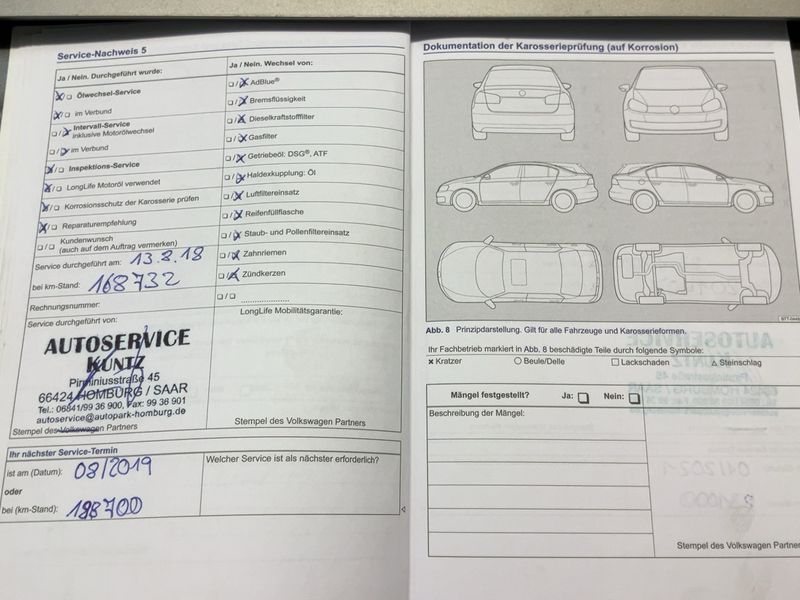 Service-Nachweis 5
Ja / Nein. Durchgeführt wurde:
Ölwechsel-Service
im Verbund
Intervall-Service
inklusive Motorölwechsel
im Verbund
Inspektions-Service
LongLife Motoröl verwendet
Korrosionsschutz der Karosserie prüfen
Reparaturempfehlung
Kundenwunsch
(auch auf dem Auftrag vermerken)
Service durchgeführt am: 13.8.18
bei km-Stand: 168732
Rechnungsnummer:
Service durchgeführt von:
AUTOSERVICE
KUNTZ
Pirminiusstraße 45
66424 HOMBURG / SAAR
Tel.: 06841/99 36 900, Fax: 99 36 901
autoservice@autopark-homburg.de
Stempel des Volkswagen Partners
Ja / Nein. Wechsel von:
AdBlue®
Bremsflüssigkeit
Dieselkraftstofffilter
Gasfilter
Getriebeöl: DSG®, ATF
Haldexkupplung: Öl
Luftfiltereinsatz
Reifenfüllflasche
Staub- und Pollenfiltereinsatz
Zahnriemen
Zündkerzen
LongLife Mobilitätsgarantie:
Stempel des Volkswagen Partners
Ihr nächster Service-Termin
ist am (Datum): 08/2019
oder
bei (km-Stand): 198700
Welcher Service ist als nächster erforderlich?
Dokumentation der Karosserieprüfung (auf Korrosion)
Abb. 8 Prinzipdarstellung. Gilt für alle Fahrzeuge und Karosserieformen.
Ihr Fachbetrieb markiert in Abb. 8 beschädigte Teile durch folgende Symbole:
Kratzer
Beule/Delle
Lackschaden
Steinschlag
Mängel festgestellt? Ja: Nein:
Beschreibung der Mängel:
Stempel des Volkswagen Partners